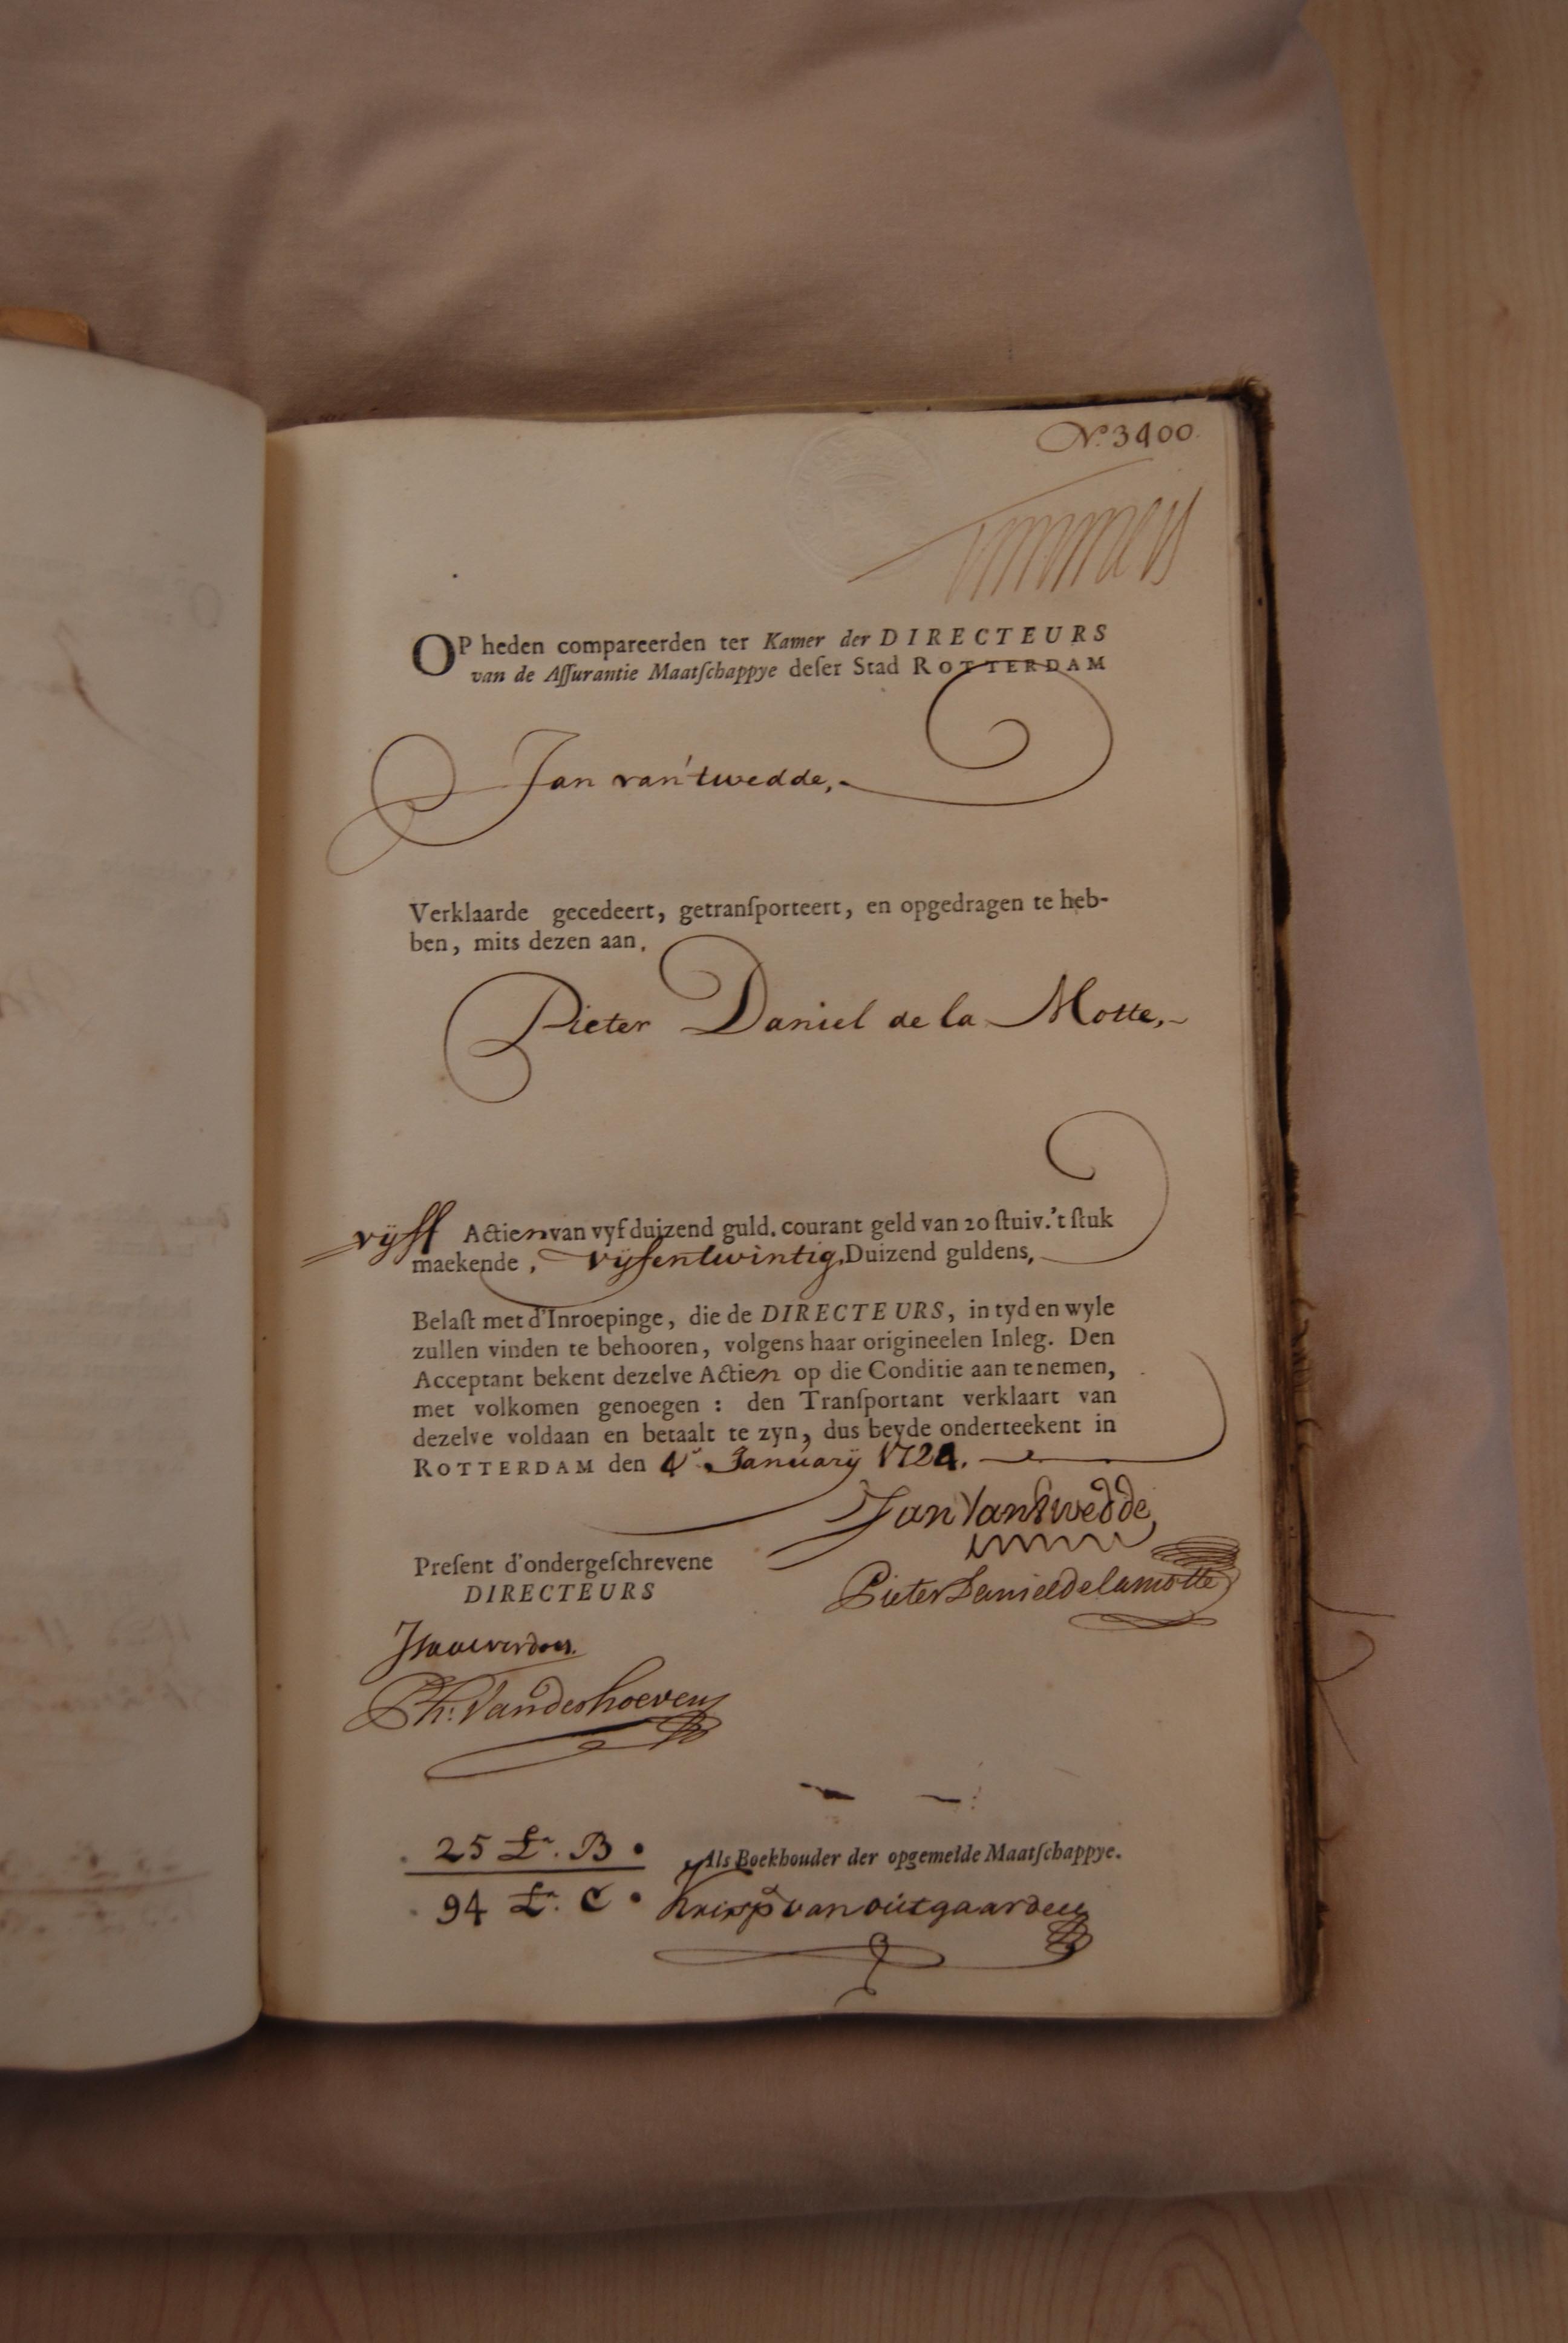 No. 3400
OP heden compareerden ter Kamer der DIRECTEURS
van de Assurantie Maatschappye deser Stad ROTTERDAM
Jan van 'twedde,
Verklaarde gecedeert, getransporteert, en opgedragen te heb-
ben, mits dezen aan,
Pieter Daniel de la Motte,
vijff Actien van vyf duizend guld. courant geld van 20 stuiv. 't stuk
maekende, vijfentwintig Duizend guldens,
Belast met d'Inroepinge, die de DIRECTEURS, in tyd en wyle
zullen vinden te behooren, volgens haar origineelen Inleg. Den
Acceptant bekent dezelve Actien op die Conditie aan te nemen,
met volkomen genoegen: den Transportant verklaart van
dezelve voldaan en betaalt te zyn, dus beyde onderteekent in
ROTTERDAM den 4 January 1724.
Jan Van twedde
Present d'ondergeschrevene
DIRECTEURS
Pieter Daniel de la motte
Ph: Vander hoeven
25 La. B.
Als Boekhouder der opgemelde Maatschappye.
94 La. C.
van outgaarden